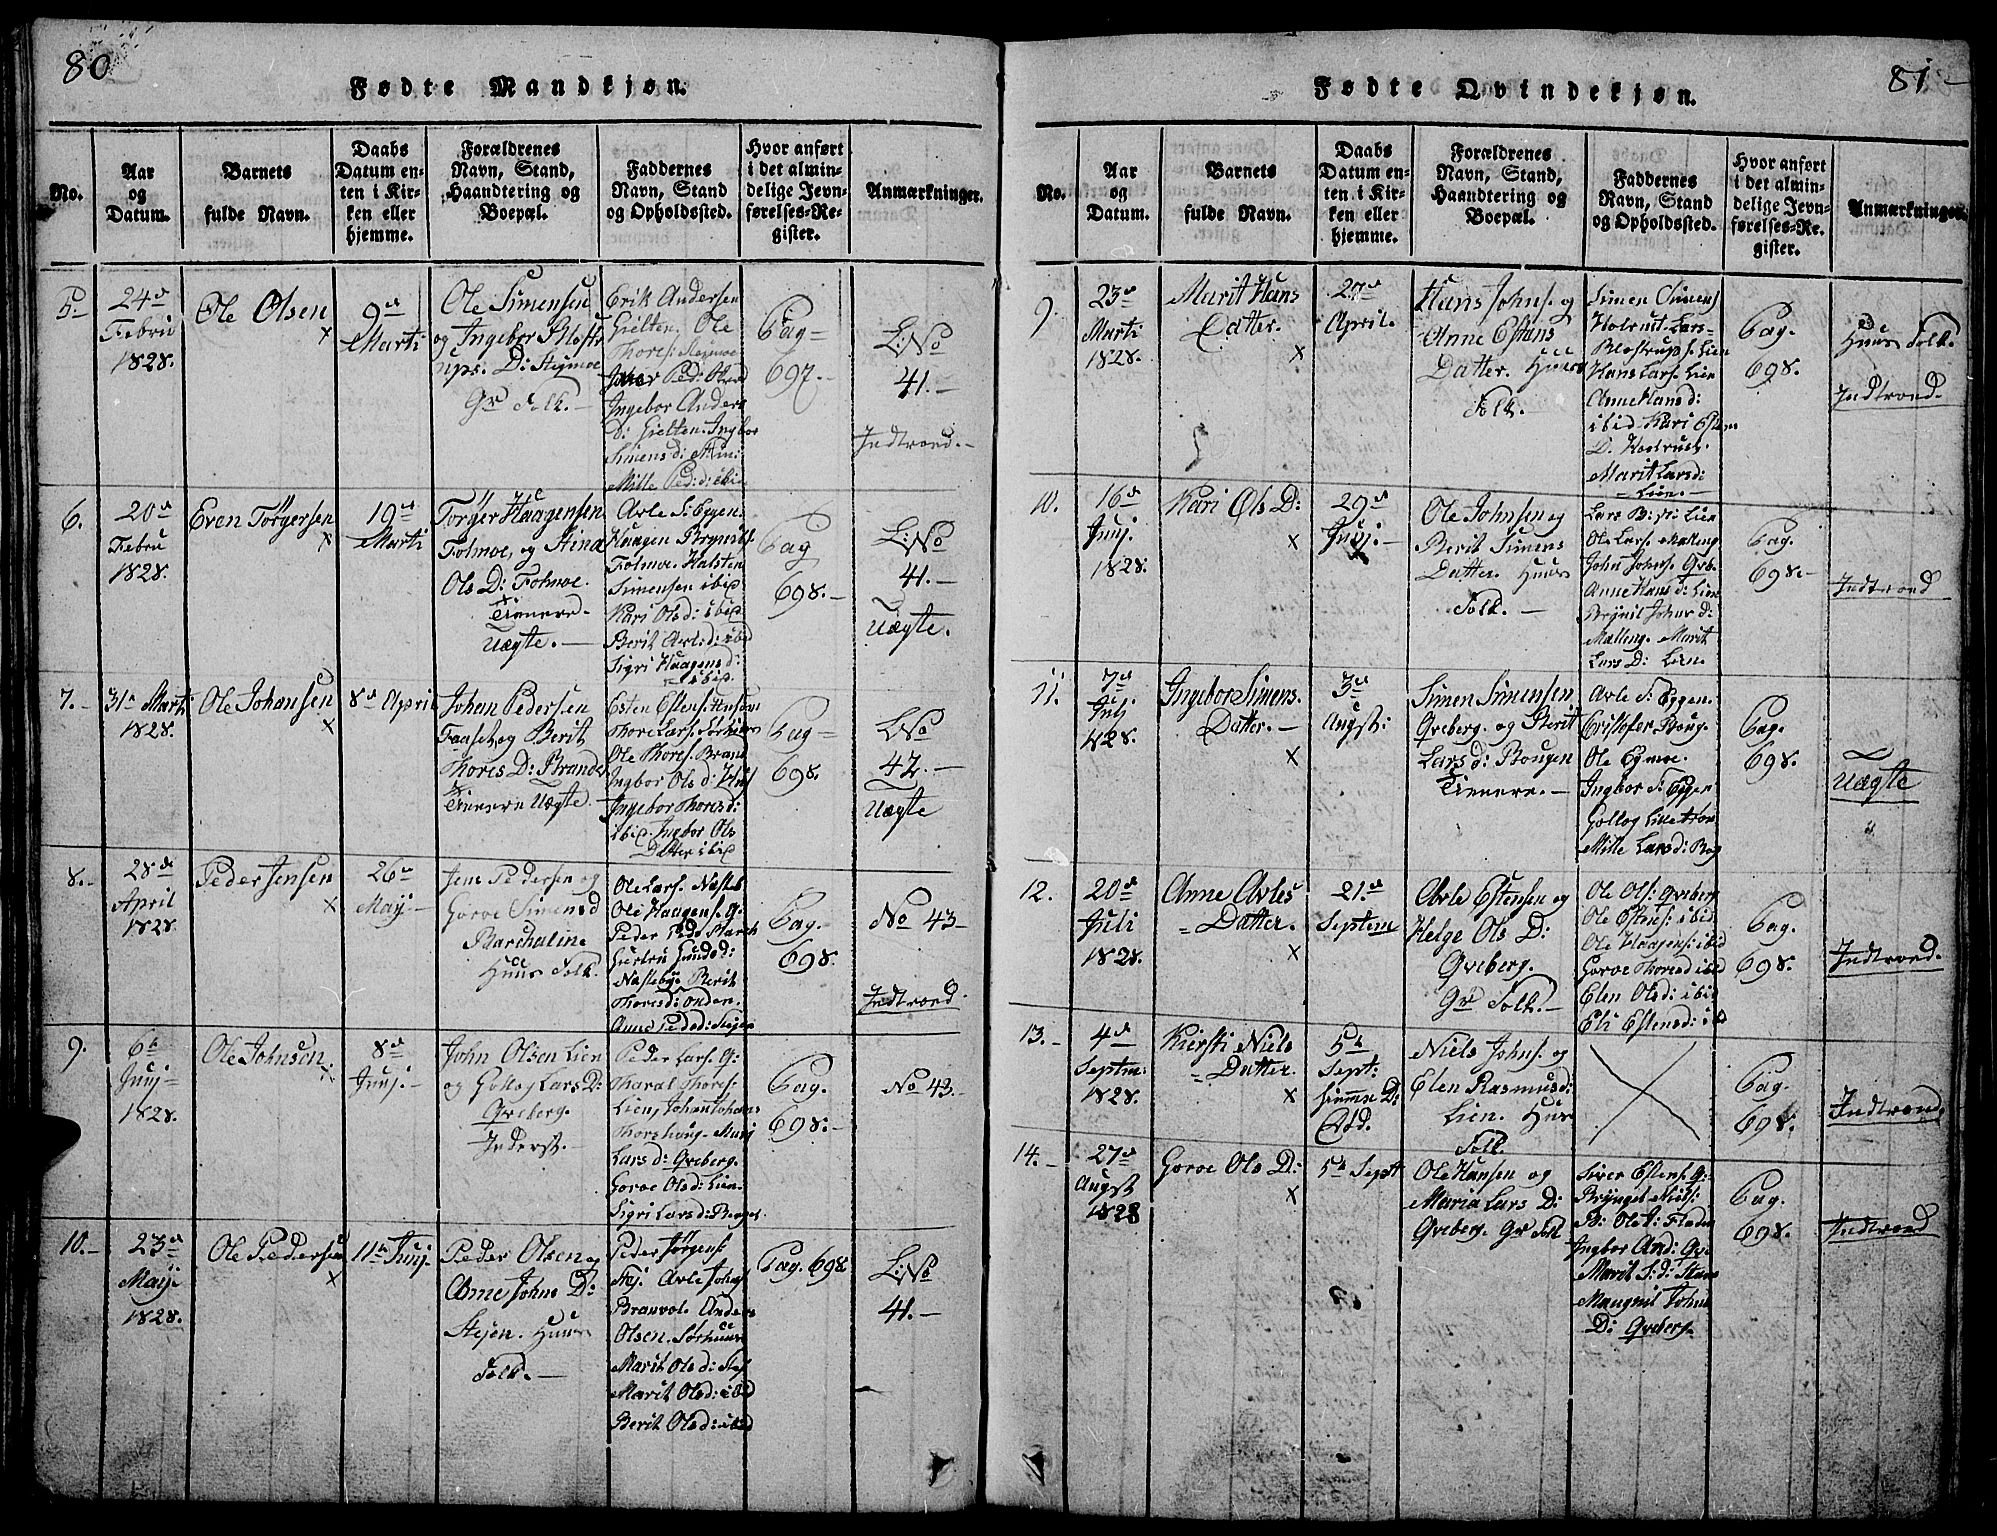 80
Fødte Mandkjøn.
No.
Aar
og
Datum.
Barnets
fulde Navn.
Daabs
Datum en-
ten i Kir-
ken eller
hjemme.
Forældrenes
Navn, Stand,
Haandtering og
Boepæl.
Faddernes
Navn, Stand
og Opholdssted.
Hvor anført
i det almin-
delige Jevn-
førelses-Re-
gister.
Anmærkninger.
5.
24d
Febru
1828.
Ole Olsen
9d
Marti
Ole Simensen
og Ingebor
D: Stejmoe
Gr Folk.
Erik Andersen
Gielten. Ole
Thores: Stejmoe
Ped:
Ingebor Anders
D: Gielten. Ingbor
Simensd:
Mille Ped: d: ibid
Pag
697.
L: No
41.
Indtroed.
6.
20d
Febru
1828.
Even Törgersen
19d
Marti
Törger Haagensen
Folmoe, og Stina
Ols D: Folmoe.
Tienere
Uægte.
Arle S: Eggen.
Haagen Brynilds
Folmoe. Halsten
Simensen ibid
Kari Olsd: ibid
Berit Arlsd: ibid
Sigri Haagensd:
ibid.
Pag
698.
L: No
41.
Uægte.
7.
31d Marti
1828.
Ole Johansen
8d April
Johan Pedersen
Faaset og Berit
Thores D: Brandv
Tienere Uægte.
Esten Estens:
Thore Lars:
Ole Thores: Brand
Ingbor Ols d:
Ingebor Thoresd:
ibid. Ingbor Ols
Datter ibid
Pag
698.
L No
42.
Uægte
8.
28de
April
1828.
Peder Jensen
26d
Maj
Jens Pedersen og
Goroe Simensd
Barchaline
Huus Folk.
Ole Lars: Næsteb
Ole Haagens: G:
Peder Peds
Nasteby Berit
Thoresd:
Anne Pedsd: Stejen
Pag.
698.
No 43
Indtroed.
9.
6d
Junj
1828.
Ole Johnsen.
8d
Junj.
John Olsen Lien
og Golloy Lars D:
Qveberg.
Inderst.
Peder Lars: G:
Haral Thores:
Lien, Johan Johans
Thorshoug. Marj
Lars d: Qveberg.
Goroe Olsd: Lien.
Sigri Larsd:
Pag.
698.
No 43.
10.
23d
Maj
1828.
Ole Pedersen
11d Junj.
Peder Olsen og
Anne Johns D:
Stejen. Huus
Folk.
Peder Jörgens:
Stej. Arle Johns
Branvol. Anders
Olsen. Sörhuus
Marit Olsd: Stej
Marit Olsd: ibid
Berit Olsd: ibid
Pag. 698
L: No
41.
81
Fødte Qvindekjøn.
No.
Aar
og
Datum.
Barnets
fulde Navn.
Daabs
Datum en-
ten i Kir-
ken eller
hjemme.
Forældrenes
Navn, Stand,
Haandtering og
Boepæl.
Faddernes
Navn, Stand
og Opholdssted.
Hvor anført
i det almin-
delige Jevn-
førelses-Re-
gister.
Anmærkninger.
9.
23d
Marti
1828.
Marit Hans
Datter.
27d
April.
Hans Johns: og
Anne Estens
Datter. Huus
Folk.
Simen Simens
Lars
Lien
Hans Lars: Lien
Anne Hans d:
ibid Kari Estens
D.
Marit Larsd:
Lien.
Pag.
698.
Huus Folk.
Indtroed.
10.
16d
Junj.
1828.
Kari Ols D:
29d
Junj.
Ole Johnsen og
Berit Simens
Datter. Huus
Folk.
Lien
Ole Lars: Malleng
John Johns: Qve.
Anne Hans d: Lien
Brynil Johns d:
Malleng. Marit
Lars D: Lien.
Pag.
698.
Indtroed
11.
7d
Juli
1828.
Ingebor Simens.
Datter.
3d
Augst:
Simen Simensen
Qveberg. og Berit
Lars d: Bougen
Tienere.
Arle S: Eggen.
Cristofer Boug.
Ole Egmoe.
Ingbor S: Eggen
Golloy Lilletroe
Mille Larsd: Bog
Pag.
698.
Uægte
12.
20d
Juli
1828.
Anne Arles
Datter.
21d
Septem
Arle Estensen og
Helge Ols D:
Qveberg.
Gr Folk.
Ole Ols: Qveberg
Ole Estens: ibid
Ole Haagens: ibid
Goroe Thoresd ibid
Elen Olsd: ibid
Eli Estensd: ibid
Pag.
698.
Indtroed.
13.
4d
Septm:
1828.
Kirsti Niels
Datter.
5d
Sept:
hiemme D:
Död.
Niels Johns: og
Elen Rasmusd:
Lien. Huus
Folk.
Pag
698.
Indtroed.
14.
27d
Augst
1828
Goroe Ols D:
5d Sept
Ole Hansen og
Maria Lars D:
Qveberg. Gr Fol
Siver Estens: G:
Brynget Niels:
Ingbor And: Qve
Marit S: d:
Maugnil Johns
D: Qveberg.
Pag.
698.
Indtroed